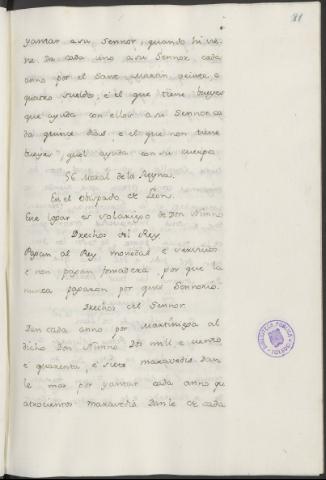 81
yantar a su Sennor, quando hi vie
ne da cada uno a su Sennor cada
anno por el Sant Martin veinte, e
quatro sueldos, é el que tiene bueyes
que ayuda con ellos a su Sennor ca
da quince dias, é el que non tiene
bueyes, quel ayuda con su cuerpo
56 Moral de la Reyna.
En el Obispado de Leon.
Este logar es solariego de Don Nunno
Derechos del Rey
Pagan al Rey monedas e servicios
e non pagan fonsadera, por que la
nunca pagaron por quel Sennorio.
Derechos del Sennor.
Dan cada anno por Martiniega al
dicho Don Nunno Dos mil e ciento
e quarenta, é siete maravedis dan
le mas por yantar cada anno qu
atrocientos maravedis danle de cada
BIBLIOTECA PUBLICA
TOLEDO